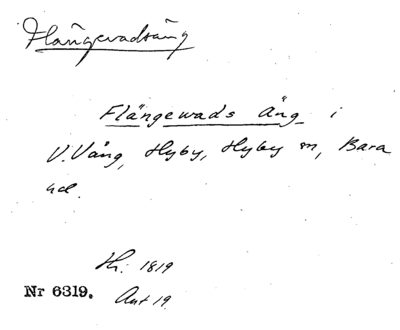 Flängevadsäng
Flängewads Äng i
V. Vång, Hyby, Hyby sn, Bara
hd.
Hr. 1819
Nr 6319. Akt 19